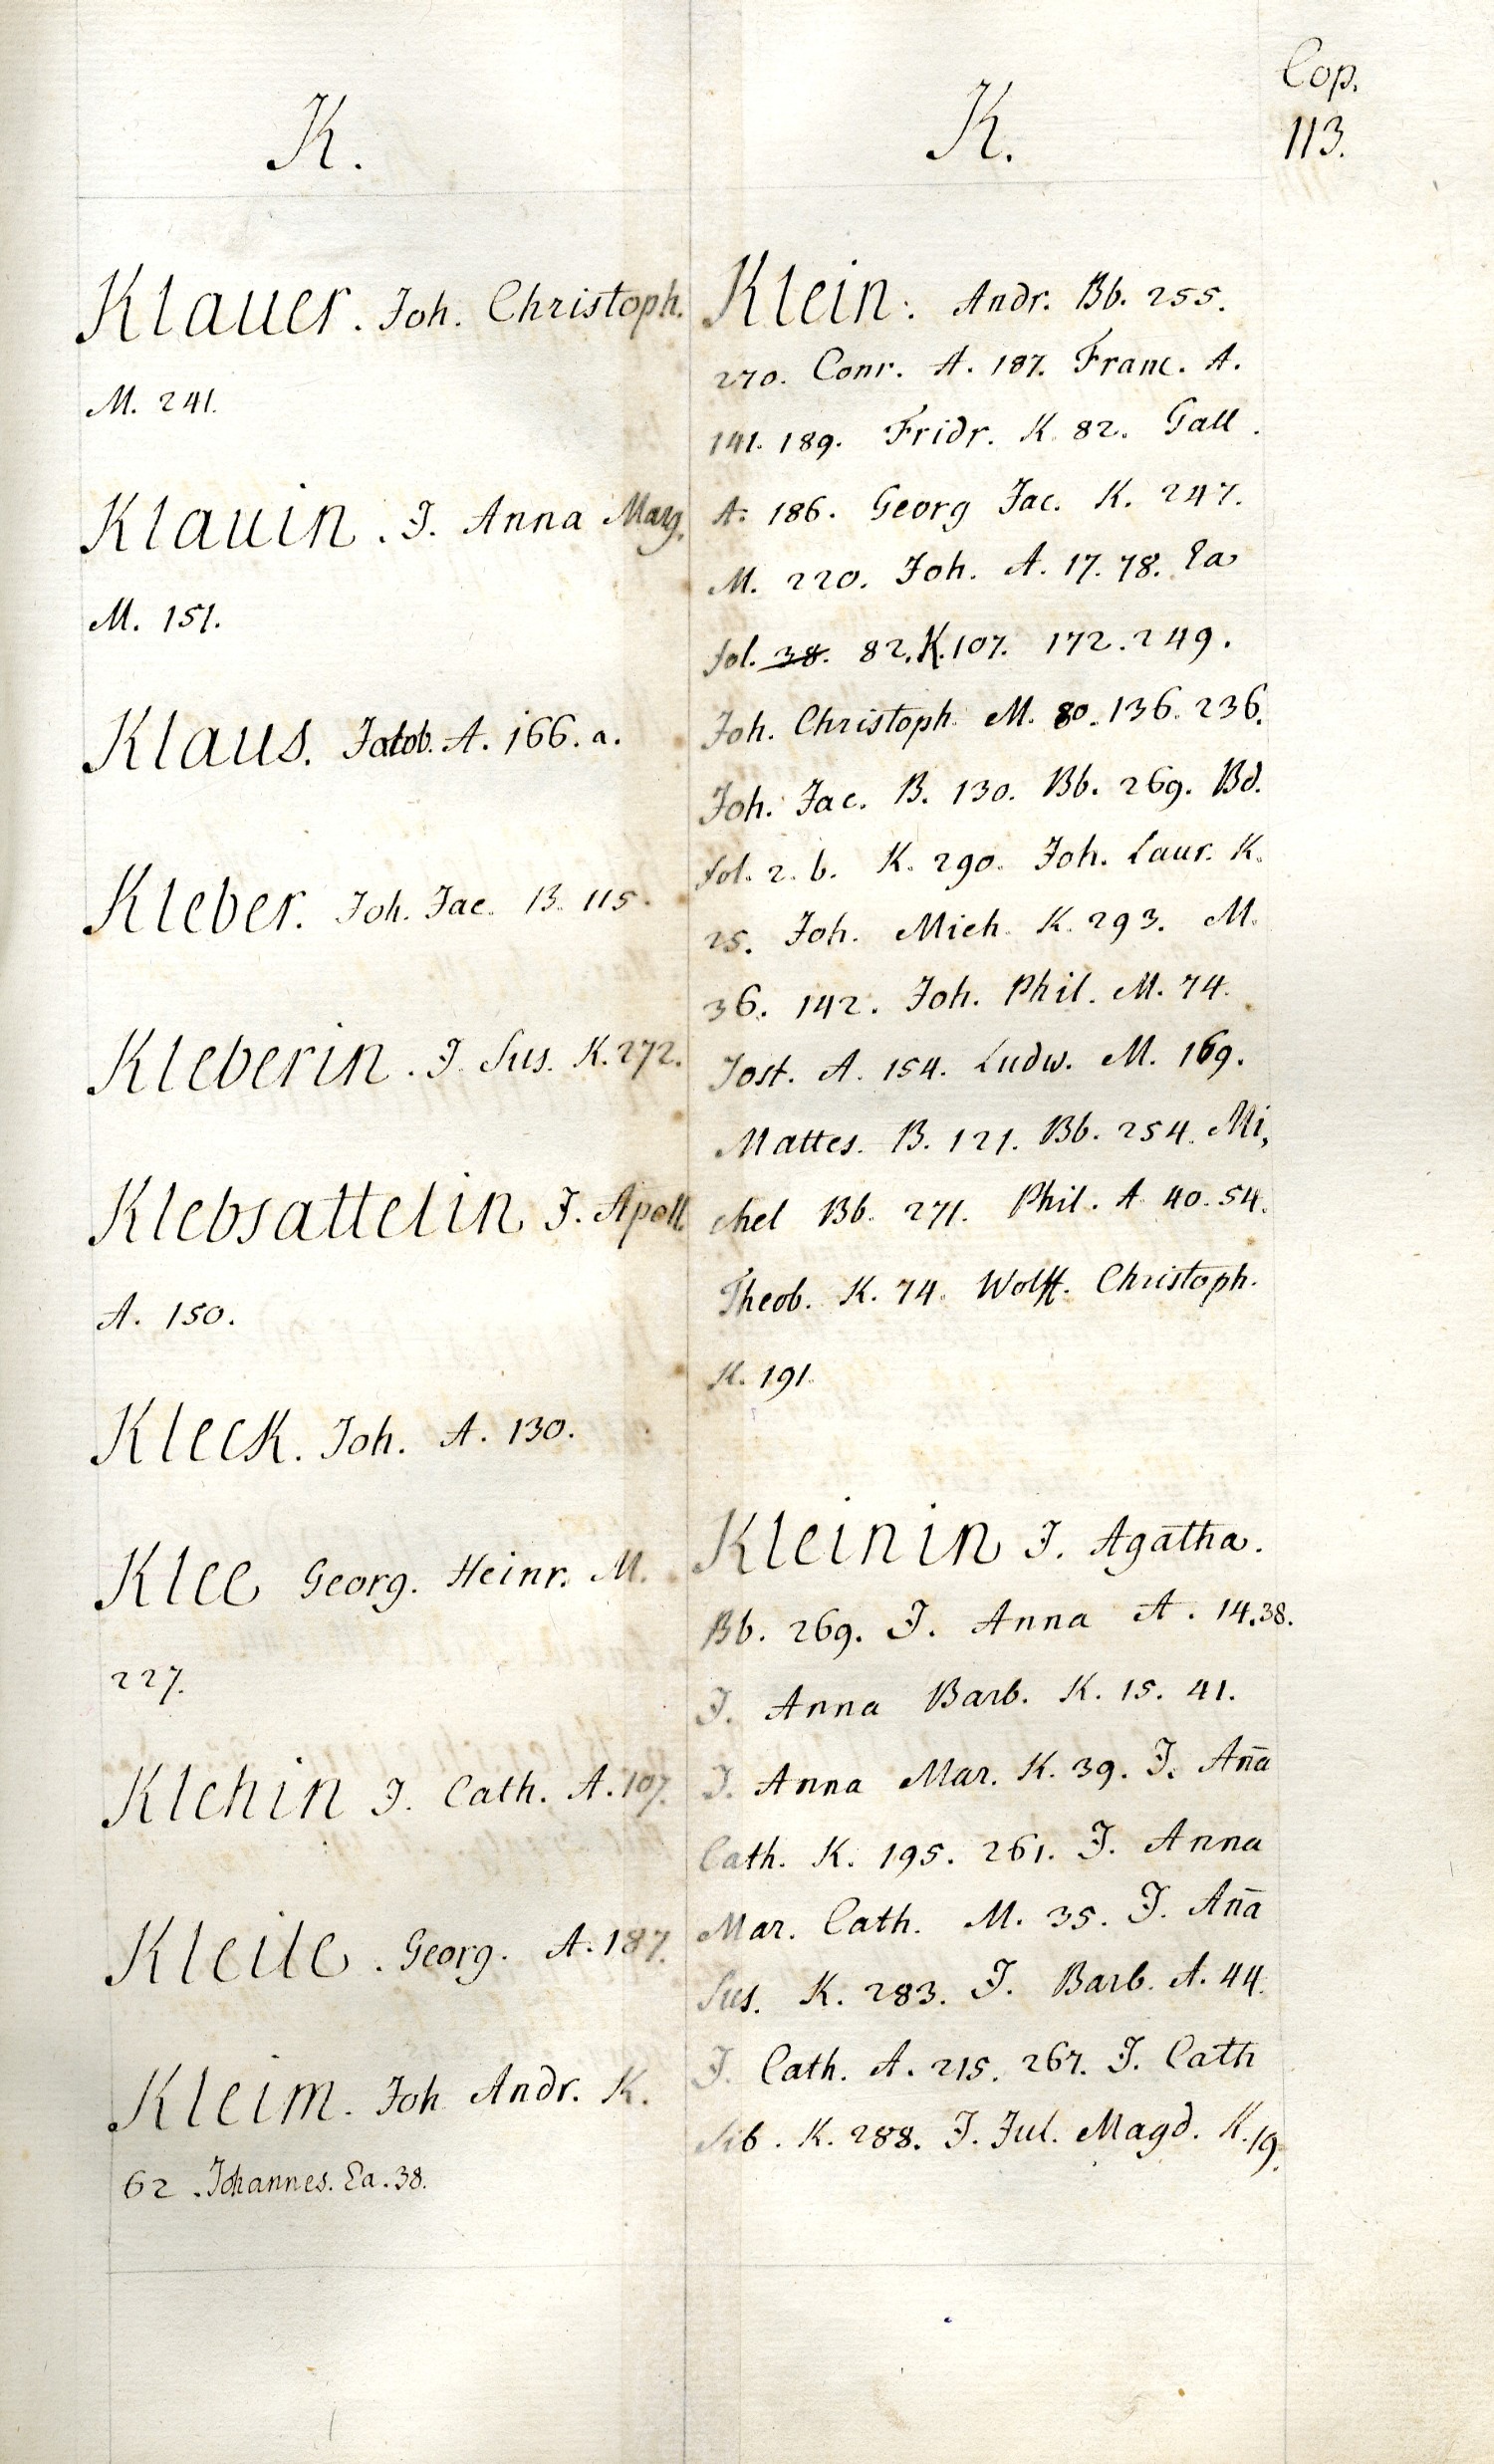 Cop.
113.
K.
Klauer. Joh. Christoph.
M. 241.
Klauin. J. Anna Marg.
M. 151.
Klaus. Jacob. A. 166. a.
Kleber. Joh. Jac. B. 115.
Kleberin. J. Sus. K. 272.
Klebsattelin J. Apoll.
A. 150.
Kleck. Joh. A. 130.
Klee Georg. Heinr. M.
227.
Klehin J. Cath. A. 107.
Kleile. Georg. A. 187.
Kleim. Joh Andr. K.
62. Johannes. Ea. 38.
K.
Klein: Andr. Bb. 255.
270. Conr. A. 187. Franc. A.
141. 189. Fridr. K. 82. Gall.
A. 186. Georg Jac. K. 247.
M. 220. Joh. A. 17. 78. Ea
fol. 38. 82. K. 107. 172. 249.
Joh. Christoph. M. 80. 136. 236.
Joh. Jac. B. 130. Bb. 269. Bd.
fol. 2. b. K. 290. Joh. Laur. K.
25. Joh. Mich. K. 293. M.
36. 142. Joh. Phil. M. 74.
Jost. A. 154. Ludw. M. 169.
Mattes. B. 121. Bb. 254. Mi,
chel Bb. 271. Phil. A. 40. 54.
Theob. K. 74. Wolff. Christoph.
K. 191.
Kleinin J. Agatha.
Bb. 269. J. Anna A. 14. 38.
J. Anna Barb. K. 15. 41.
J. Anna Mar. K. 39. J. Aña
Cath. K. 195. 261. J. Anna
Mar. Cath. M. 35. J. Aña
Sus. K. 283. J. Barb. A. 44.
J. Cath. A. 215. 267. J. Cath
Sib. K. 288. J. Jul. Magd. K. 19.